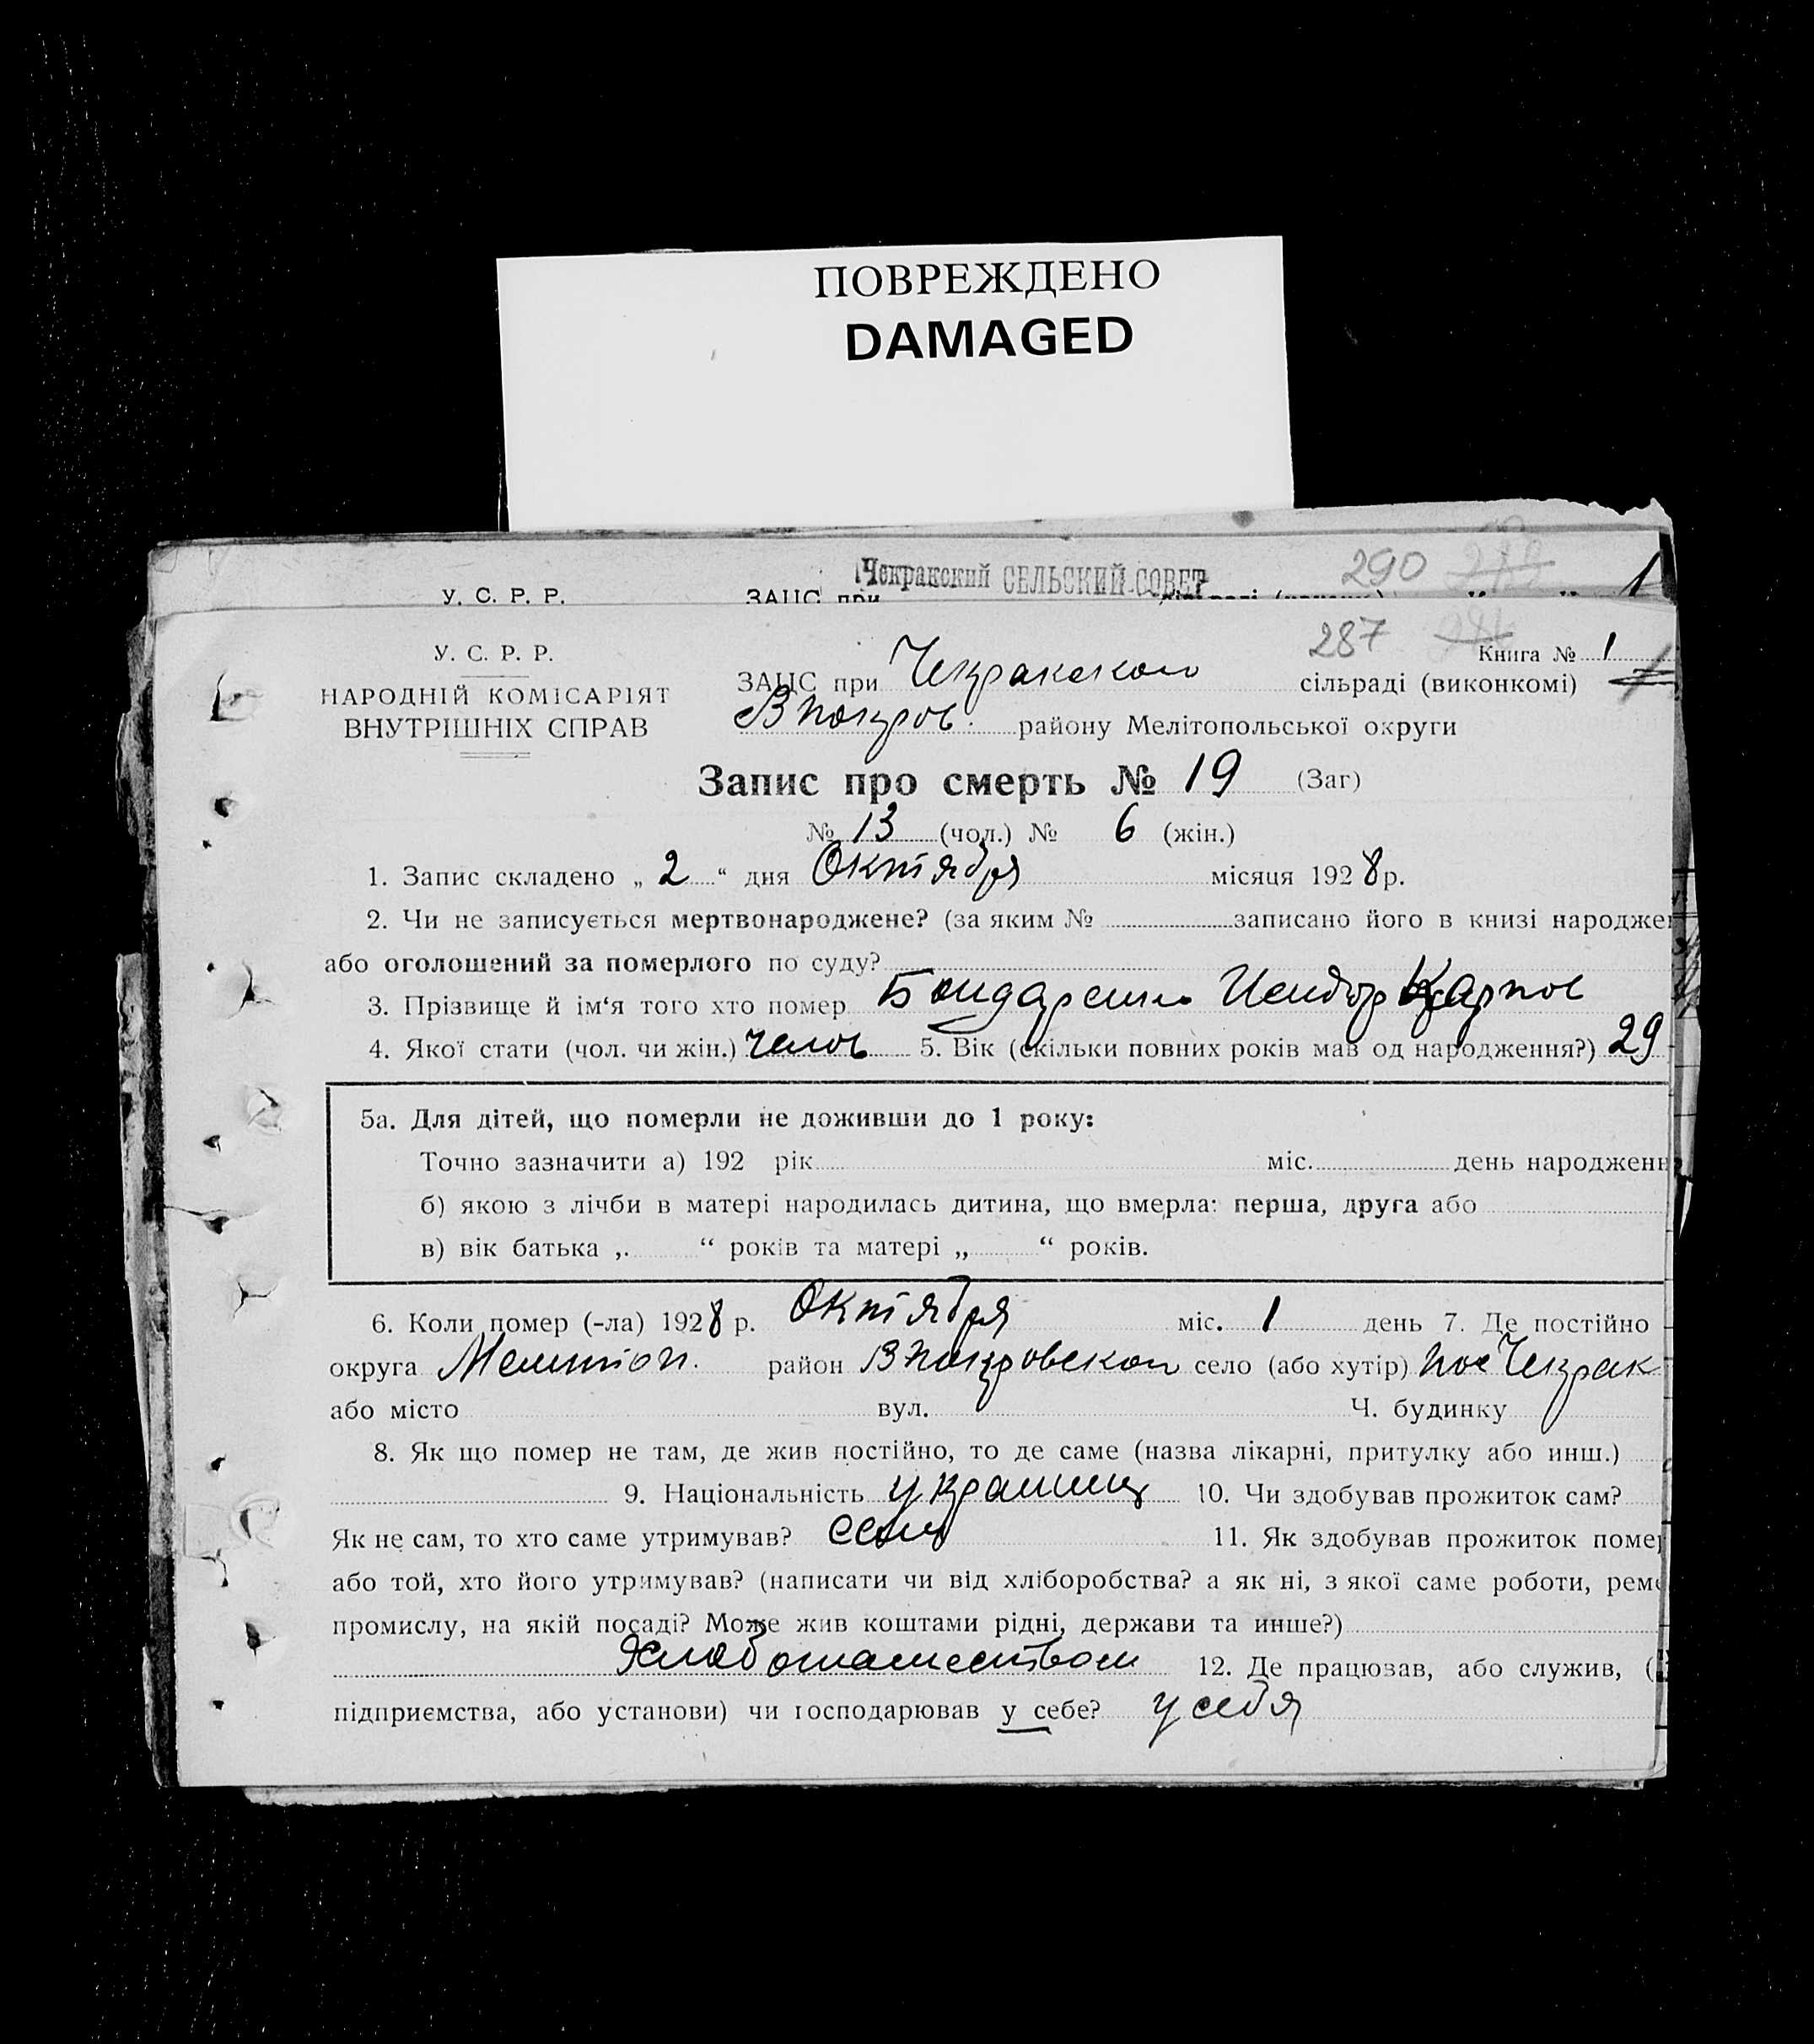 ПОВРЕЖДЕНО
DAMAGED
Чекракский СЕЛЬСКИЙ СОВЕТ 290
У. С. Р. Р. ЗАЦС при 1
287
У. С. Р. Р. Книга № 1
НАРОДНІЙ КОМІСАРІЯТ ЗАЦС при Чекракском сільраді (виконкомі)
ВНУТРІШНІХ СПРАВ В покров. району Мелітопольської округи
Запис про смерть № 19 (Заг)
№ 13 (чол.) № 6 (жін.)
1. Запис складено „ 2 “ дня Октября місяця 1928 р.
2. Чи не записується мертвонароджене? (за яким № записано його в книзі народжен
або оголошений за померлого по суду?
3. Прізвище й ім‘я того хто помер Бондаренко Исидор Карпов
4. Якої стати (чол. чи жін.) 5. Вік (скільки повних років мав од народження?) 29
5а. Для дітей, що померли не доживши до 1 року:
Точно зазначити а) 192 рік міс. день народженн
б) якою з лічби в матері народилась дитина, що вмерла: перша, друга або
в) вік батька „ “ років та матері „ “ років.
6. Коли помер (-ла) 1928 р. Октября міс. 1 день 7. Де постійно
округа Мелитоп. район Впокровском село (або хутір) пос Чекрак
або місто вул. Ч. будинку
8. Як що помер не там, де жив постійно, то де саме (назва лікарні, притулку або инш.)
9. Національність украинец 10. Чи здобував прожиток сам?
Як не сам, то хто саме утримував? сам 11. Як здобував прожиток помер
або той, хто його утримував? (написати чи від хліборобства? а як ні, з якої саме роботи, реме
промислу, на якій посаді? Може жив коштами рідні, держави та инше?)
Хлебопашеством 12. Де працював, або служив, (
підприємства, або установи) чи господарював у себе? у себя